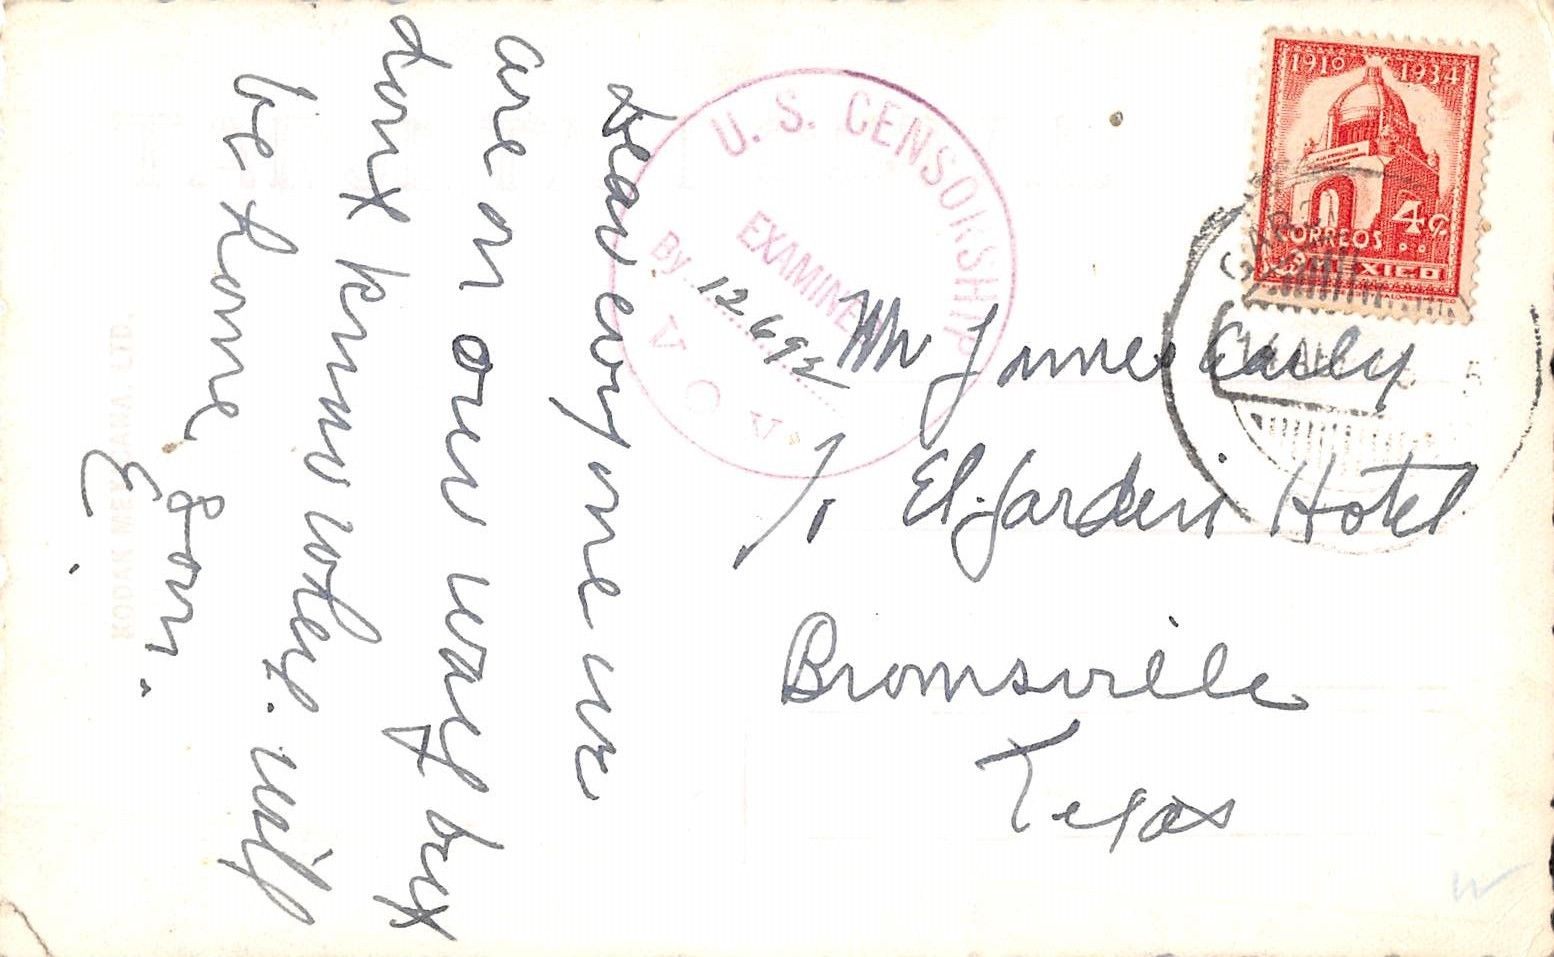 Dear evryone we
are on our way but
dont know when. will
be home soon.
E.
U. S. CENSORSHIP
EXAMINED
By 12692
Mr James
c/o El Jardin Hotel
Brownsville
Texas
1910 1934
4¢
CORREOS
MEXICO
KODAK MEXICANA, LTD.